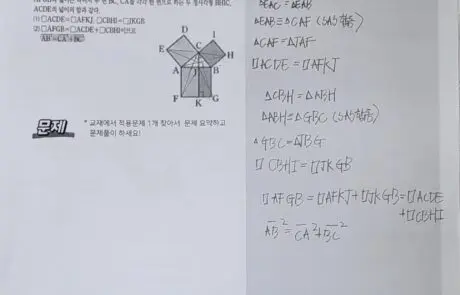 ACDE의 넓이의 합과 같다.
(1) □ACDE=□AFKJ, □CBHI=□JKGB
(2) □AFGB=□ACDE+□CBHI이므로
AB²=CA²+BC²
D
I
E
C
H
A
J
B
F
K
G
문제
* 교재에서 적용문제 1개 찾아서 문제 요약하고
문제풀이 하세요!
△EAC = △EAB
△EAB=△CAF (SAS합동)
△CAF=△JAF
□ACDE=□AFKJ
△CBH=△ABH
△ABH=△GBC (SAS합동)
△GBC=△JBG
□CBHI=□JKGB
□AFGB=□AFKJ+□JKGB=□ACDE
+□CBHI
AB²=CA²+BC²